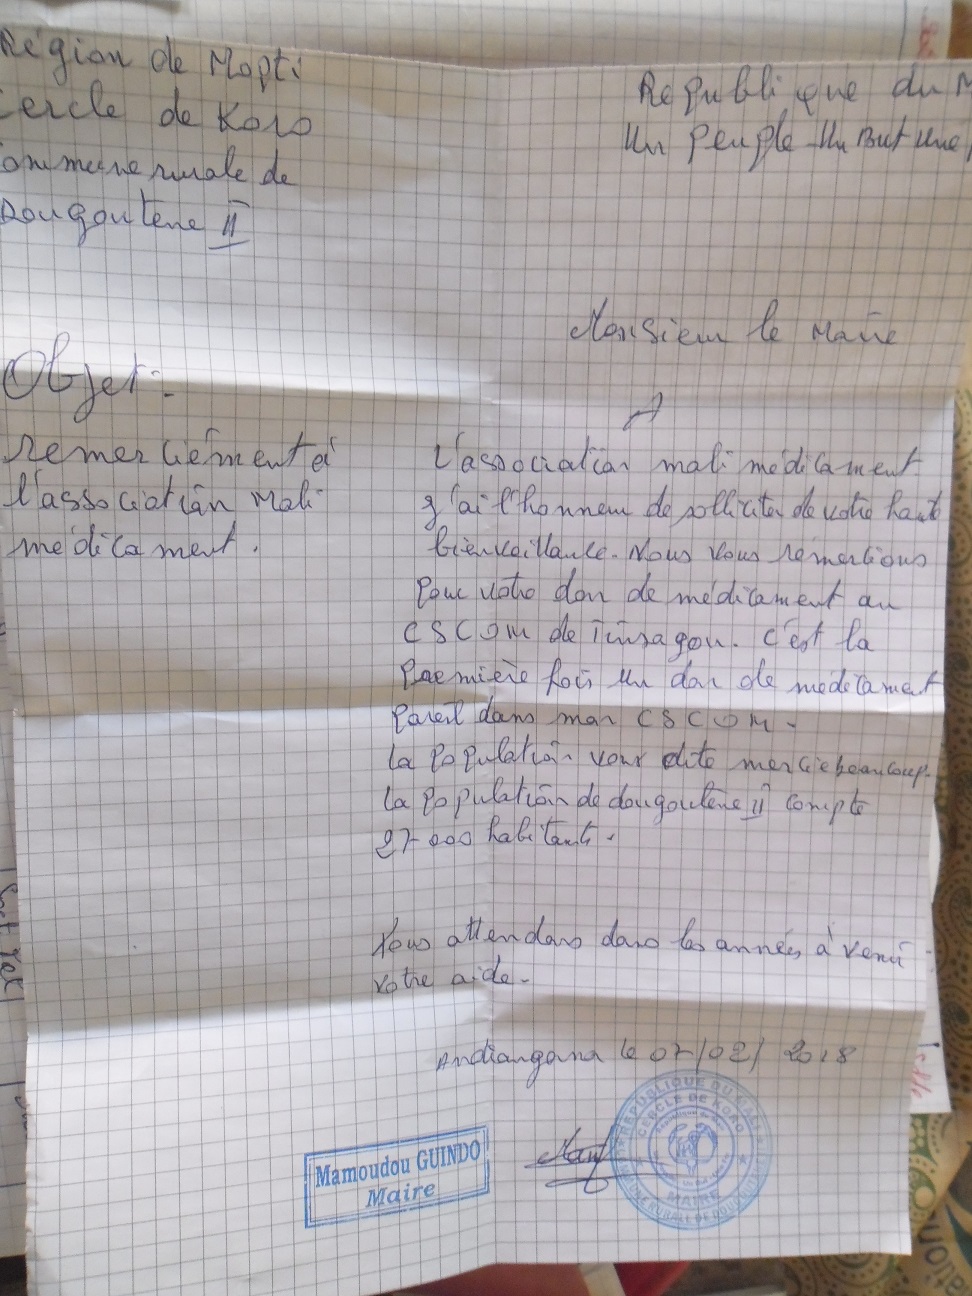 Région de Mopti
Cercle de Koro
Commune rurale de
Dougoutene II
Republique du M
Un peuple Un But Une
Monsieur le Maire
Objet:
remerciement à
l'association Mali
médicament.
A
L'association mali médicament
J'ai l'honneur de solliciter de votre haute
bienveillance. Nous vous remercions
pour votre don de médicament au
CSCOM de Tinsagou. C'est la
première fois un don de médicament
pareil dans mon CSCOM.
la population vous dite mercie beaucoup.
la population de dougoutene II compte
27000 habitants.
Nous attendons dans les années à venir
votre aide.
Andiangana le 07/02/2018
Mamoudou GUINDO
Maire
REPUBLIQUE DU MALI
CERCLE DE KORO
MAIRE
RURALE DE